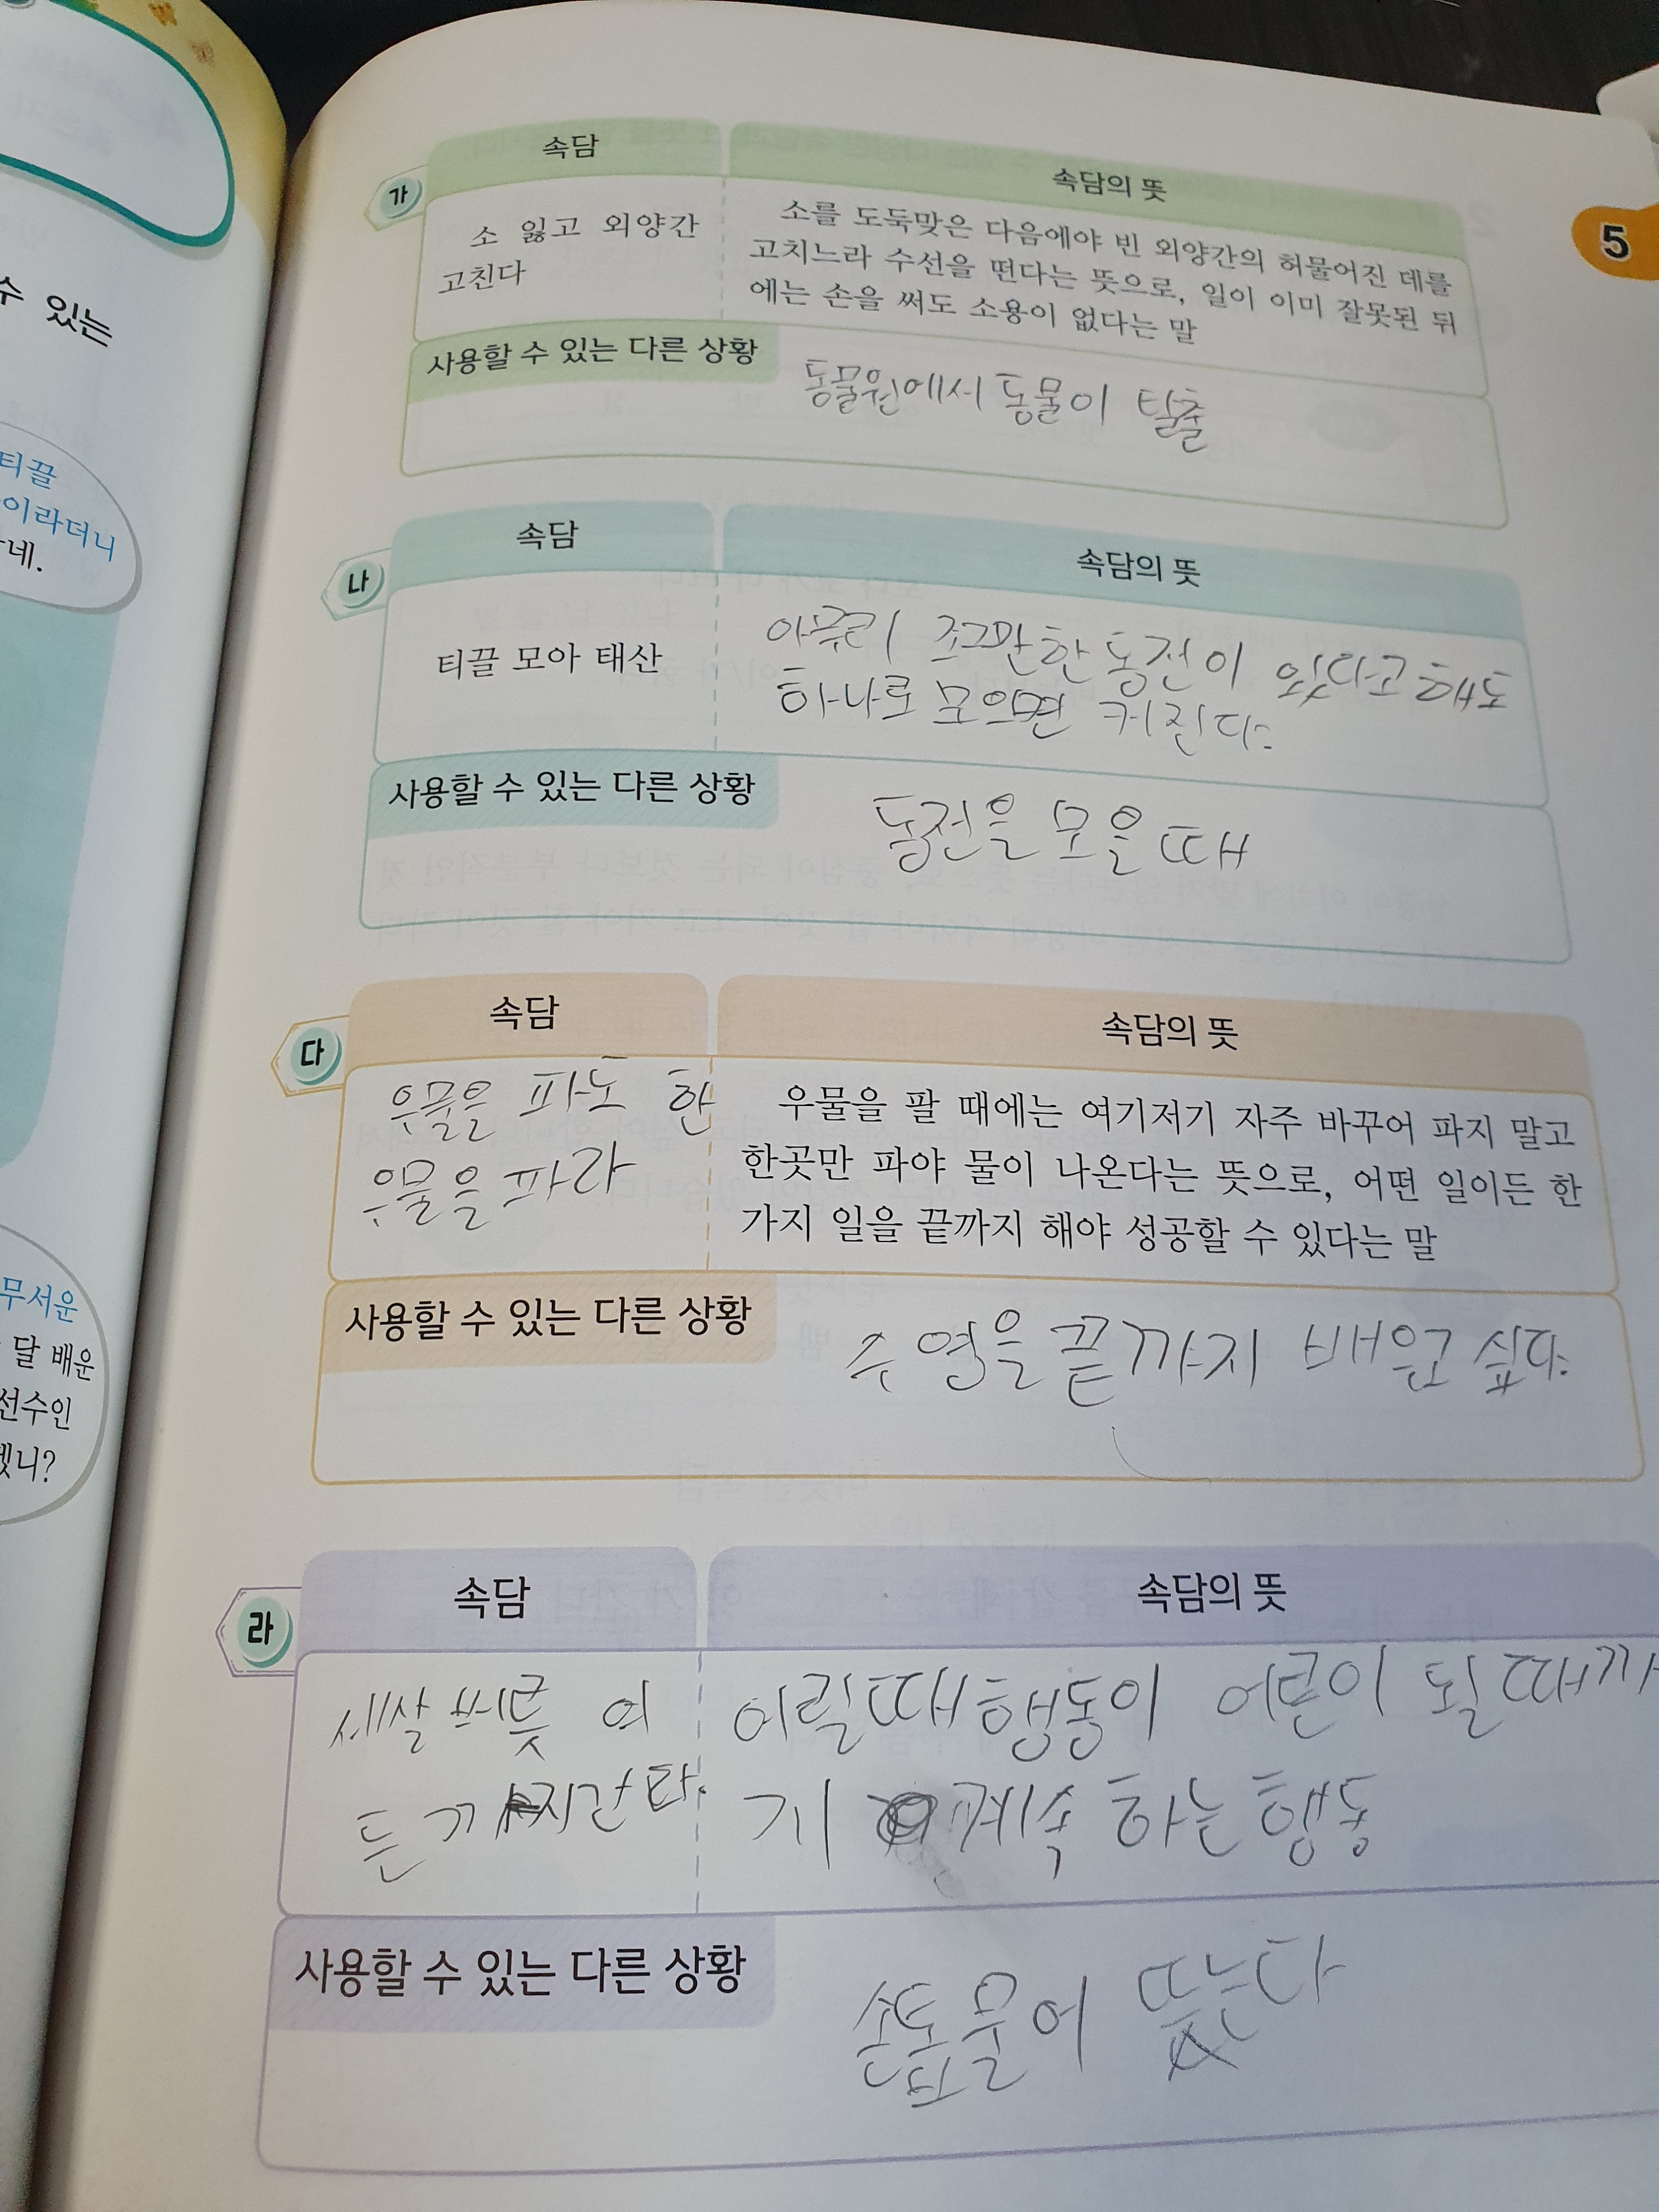 수 있는
티끌
이라더니
네.
무서운
달 배운
선수인
겠니?
5
가
속담
속담의 뜻
소 잃고 외양간
고친다
소를 도둑맞은 다음에야 빈 외양간의 허물어진 데를
고치느라 수선을 떤다는 뜻으로, 일이 이미 잘못된 뒤
에는 손을 써도 소용이 없다는 말
사용할 수 있는 다른 상황
동물원에서 동물이 탈출
나
속담
속담의 뜻
티끌 모아 태산
아무리 조그만한 동전이 있다고 해도
하나로 모으면 커진다.
사용할 수 있는 다른 상황
동전을 모을 때
다
속담
속담의 뜻
우물을 파노 한
우물을 파라
우물을 팔 때에는 여기저기 자주 바꾸어 파지 말고
한곳만 파야 물이 나온다는 뜻으로, 어떤 일이든 한
가지 일을 끝까지 해야 성공할 수 있다는 말
사용할 수 있는 다른 상황
수영을 끝까지 배우고 싶다.
라
속담
속담의 뜻
세살 버릇 여
든 까지간다.
어릴때 행동이 어른이 될 때까
지 계속 하는 행동
사용할 수 있는 다른 상황
손톱물어 뜯는다